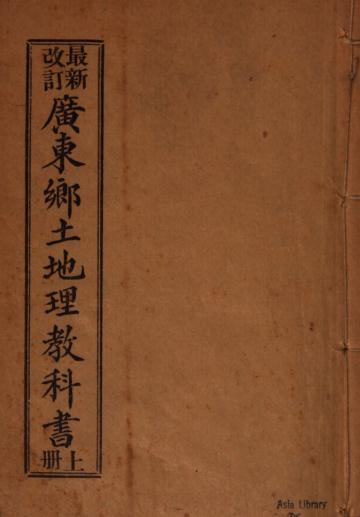 最新
改訂
廣東鄉土地理教科書
上
册
Asia Library